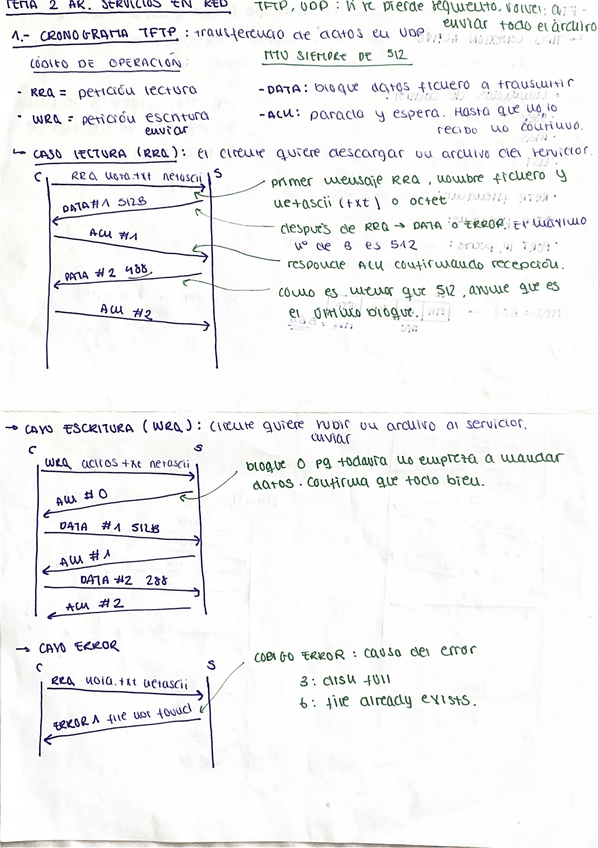 TEMA 2 AR. SERVICIOS EN RED
TFTP, UDP: si se pierde segmento, volver a
enviar todo el archivo
1.- CRONOGRAMA TFTP: transferencia de datos en UDP
CÓDIGO DE OPERACIÓN:
MTU SIEMPRE DE 512
- RRQ = petición lectura
- DATA: bloque datos fichero a transmitir
- WRQ = petición escritura
enviar
- ACK: paracía y espera. Hasta que no lo
recibo no continuo.
CASO LECTURA (RRQ): el cliente quiere descargar un archivo del servidor.
C S
RRQ nota.txt netascii
DATA #1 512B
ACK #1
DATA #2 488
ACK #2
primer mensaje RRQ, nombre fichero y
netascii (txt) o octet
después de RRQ → DATA o ERROR. El máximo
nº de B es 512
responde ACK confirmando recepción.
como es menor que 512, asume que es
el último bloque.
→ CASO ESCRITURA (WRQ): cliente quiere subir un archivo al servidor.
enviar
C S
WRQ netascii
ACK #0
DATA #1 512B
ACK #1
DATA #2 288
ACK #2
bloque 0 pq todavía no empieza a mandar
datos. Confirma que todo bien.
→ CASO ERROR
C S
RRQ nota.txt netascii
ERROR 1 file not found
CODIGO ERROR: causa del error
3: disk full
6: file already exists.